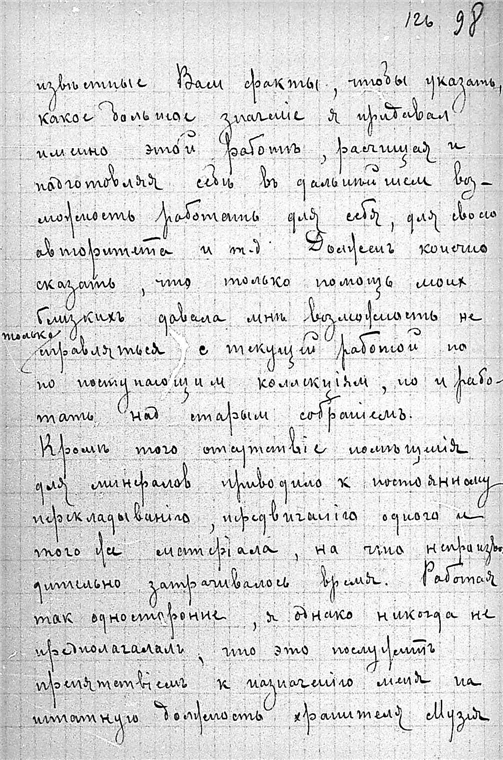 126 98
извѣстные Вам факты, чтобы указать,
какое большое значеніе я придавал
именно этой работѣ, расчищая и
подготовляя себѣ въ дальнѣйшем воз-
можность работать для себя, для своего
авторитета и т.д. Должен конечно
сказать, что только помощь моих
близкихъ давала мнѣ возможность не
только
справляться с текущей работой по
по поступающим коллекціям, но и рабо-
тать над старым собраніемъ.
Кромѣ того отсутствіе помѣщенія
для минералов приводило к постоянному
перекладыванію, передвиганію одного и
того же матеріала, на что непроизво-
дительно затрачивалось время. Работая
так односторонне, я однако никогда не
предполагалъ, что это послужитъ
препятствіемъ к назначенію меня на
штатную должность хранителя Музея